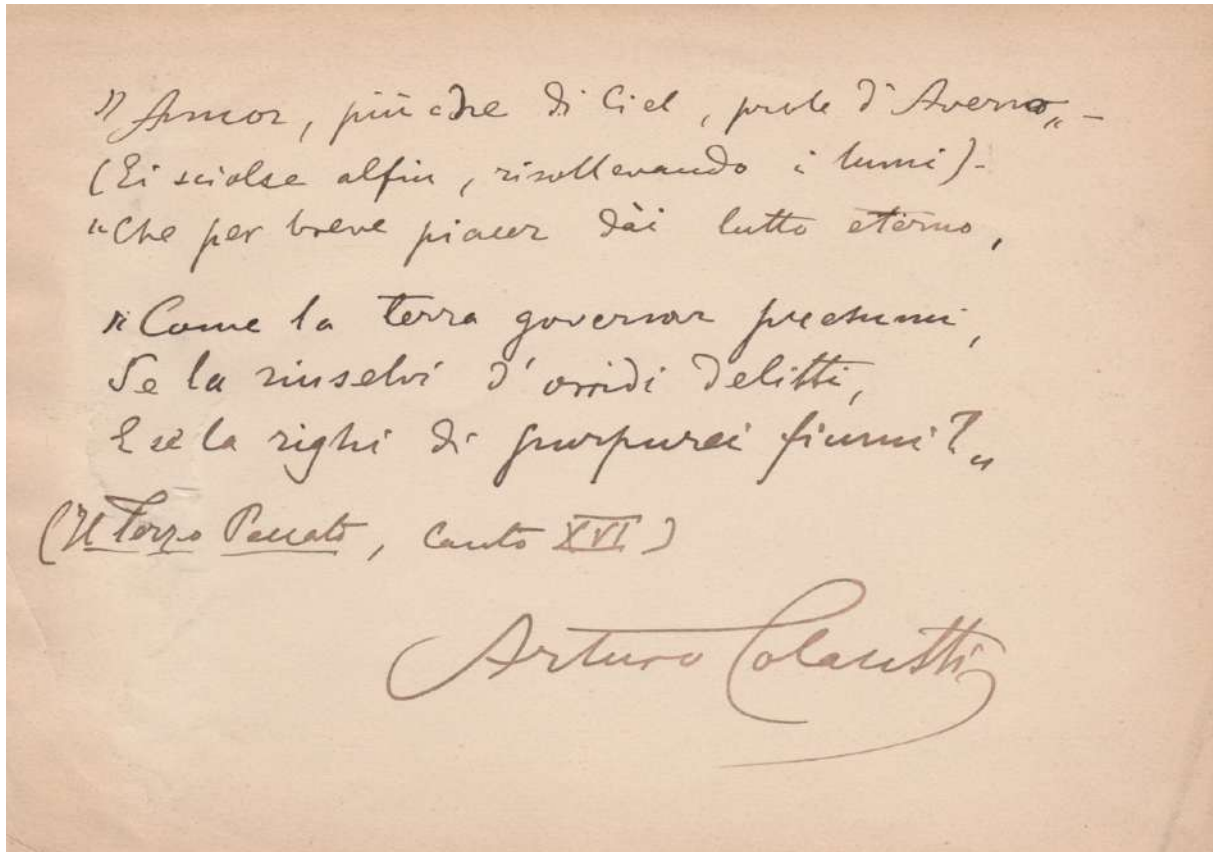 "Amor, più che di Ciel, prole d'Averno„ -
(Ei sciolse alfin, risollevando i lumi) -
"Che per breve piacer dài lutto eterno,
"Come la terra governar presumi,
Se la rinselvi d'orridi delitti,
E se la righi di purpurei fiumi?„
(Il Terzo Peccato, Canto XVI)
Arturo Colautti